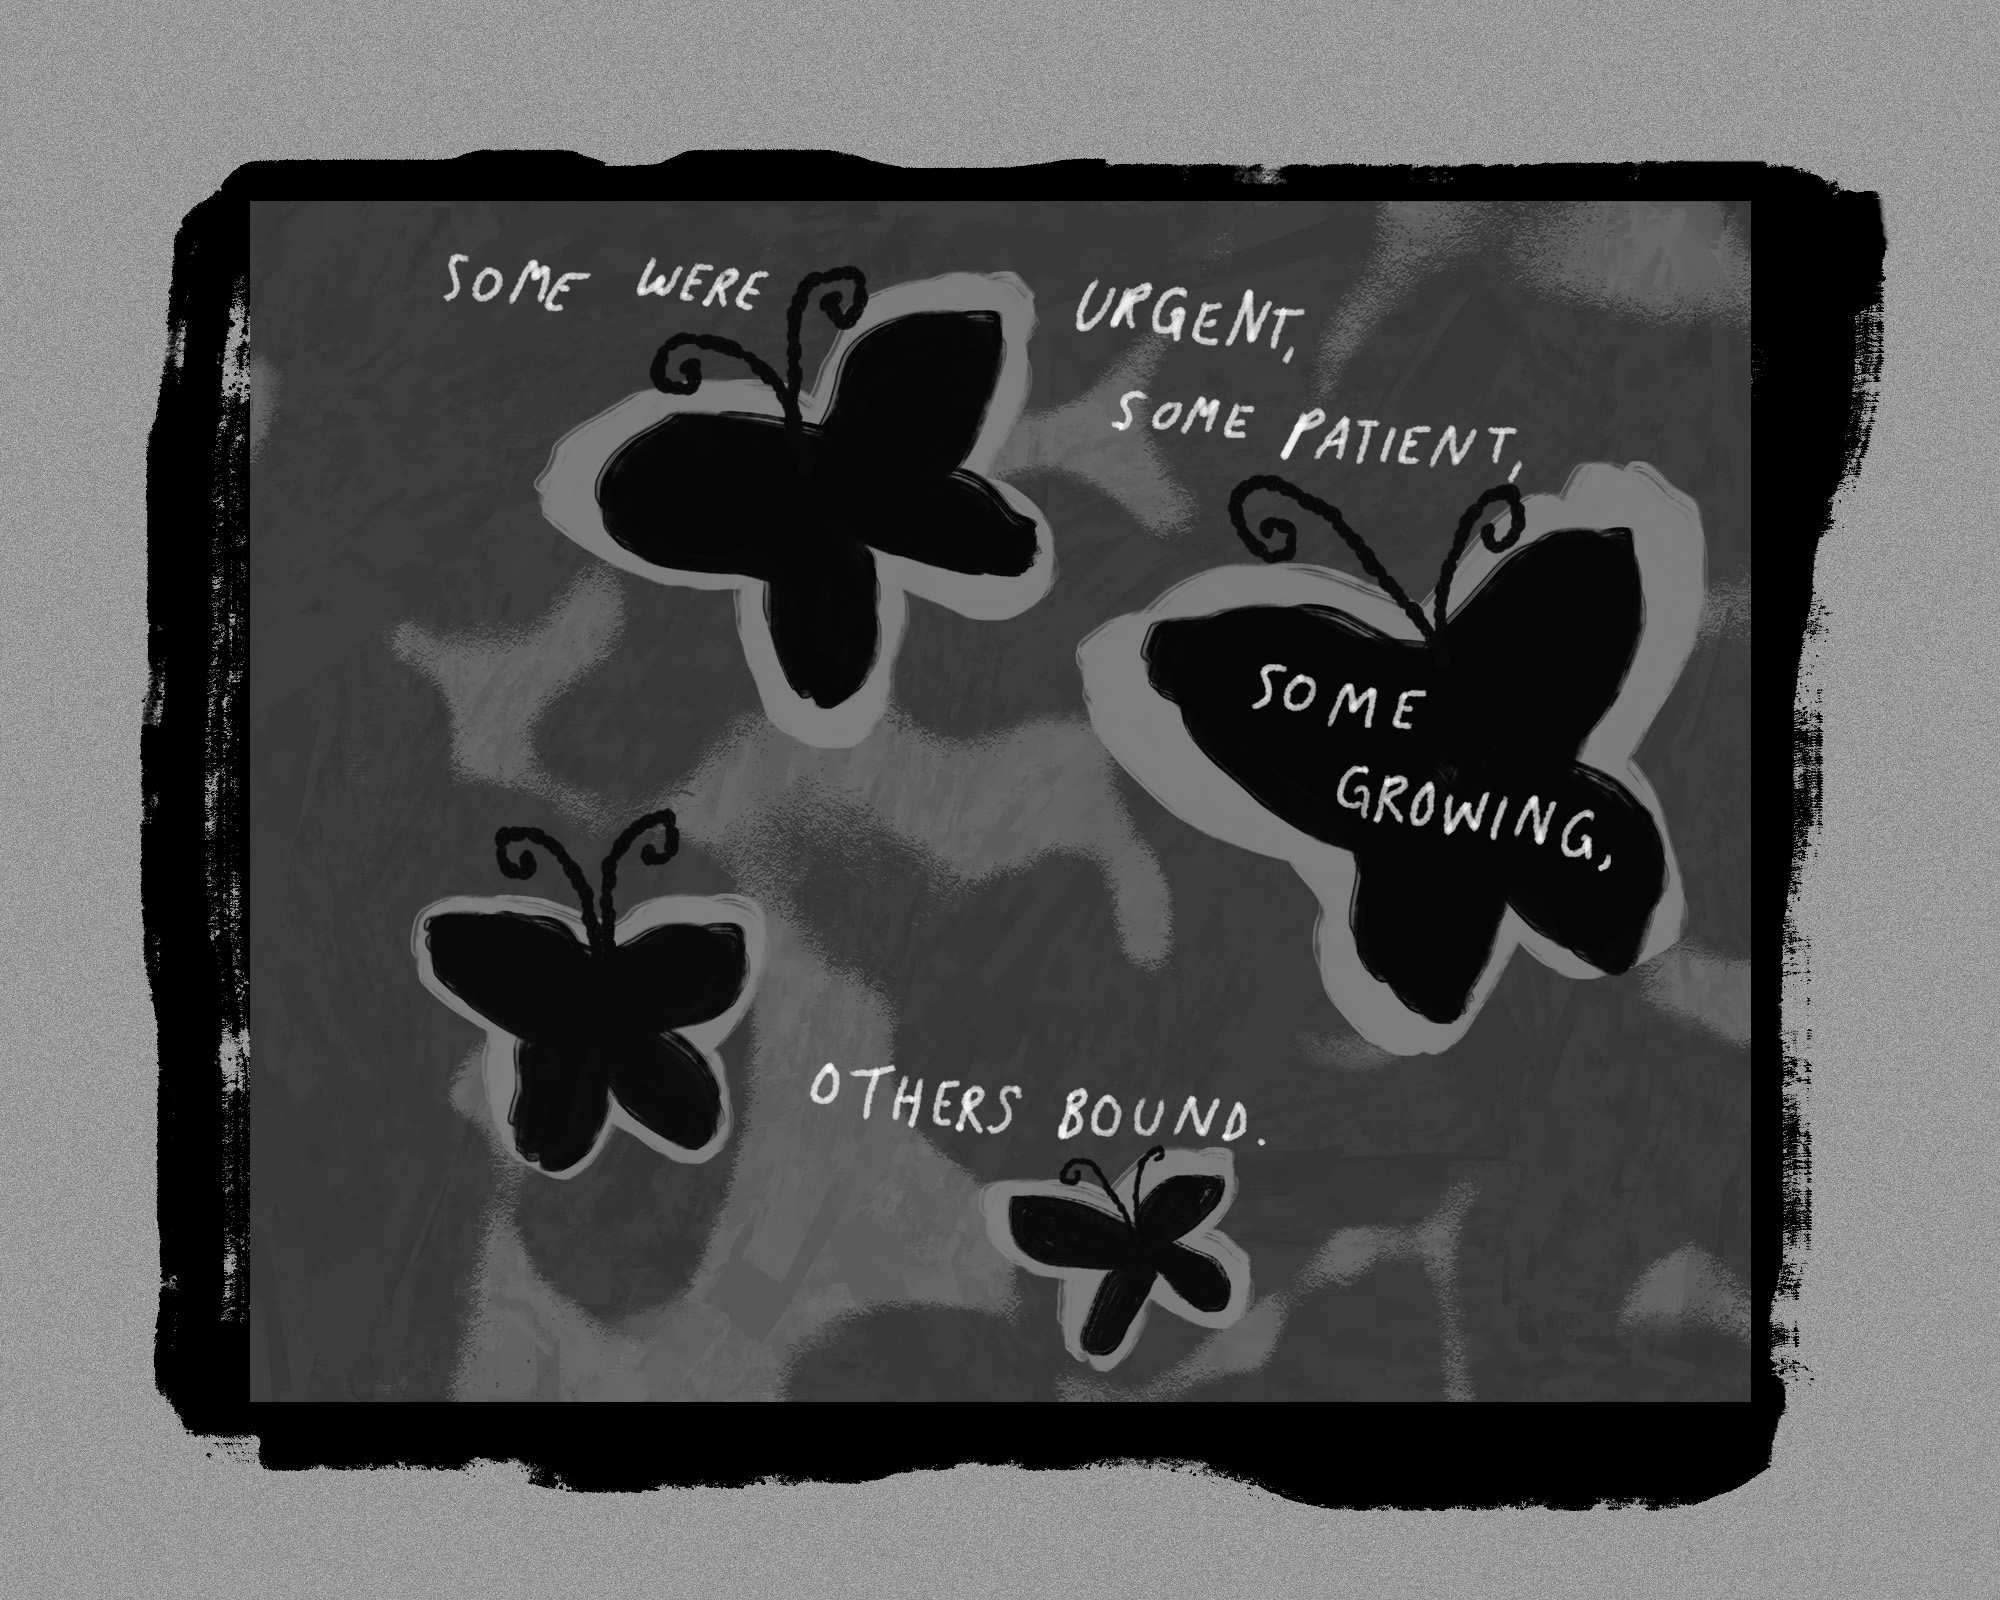 SOME WERE URGENT,
SOME PATIENT,
SOME
GROWING,
OTHERS BOUND.